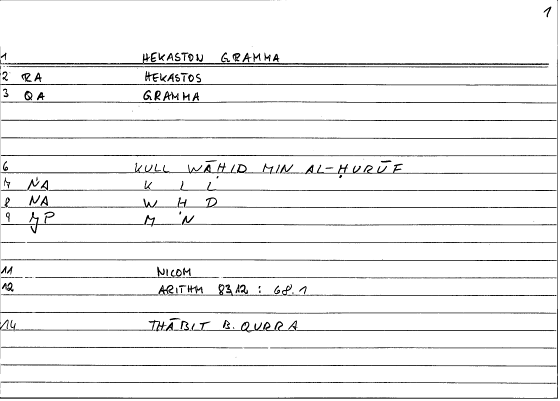 1
1 HEKASTON GRAMMA
2 RA HEKASTOS
3 QA GRAMMA
6 KULL WĀḤID MIN AL-ḤURŪF
7 NA K L L
8 NA W Ḥ D
9 JP M N
11 NICOM
12 ARITHM 83,12 : 68.1
14 THĀBIT B. QURRA